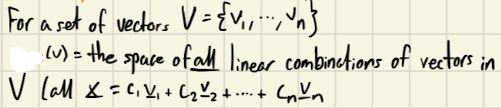 For a set of vectors V = {v₁, ⋯, vₙ}
(v) = the space of all linear combinations of vectors in
V (all x = c₁v₁ + c₂v₂ + ⋯ + cₙvₙ